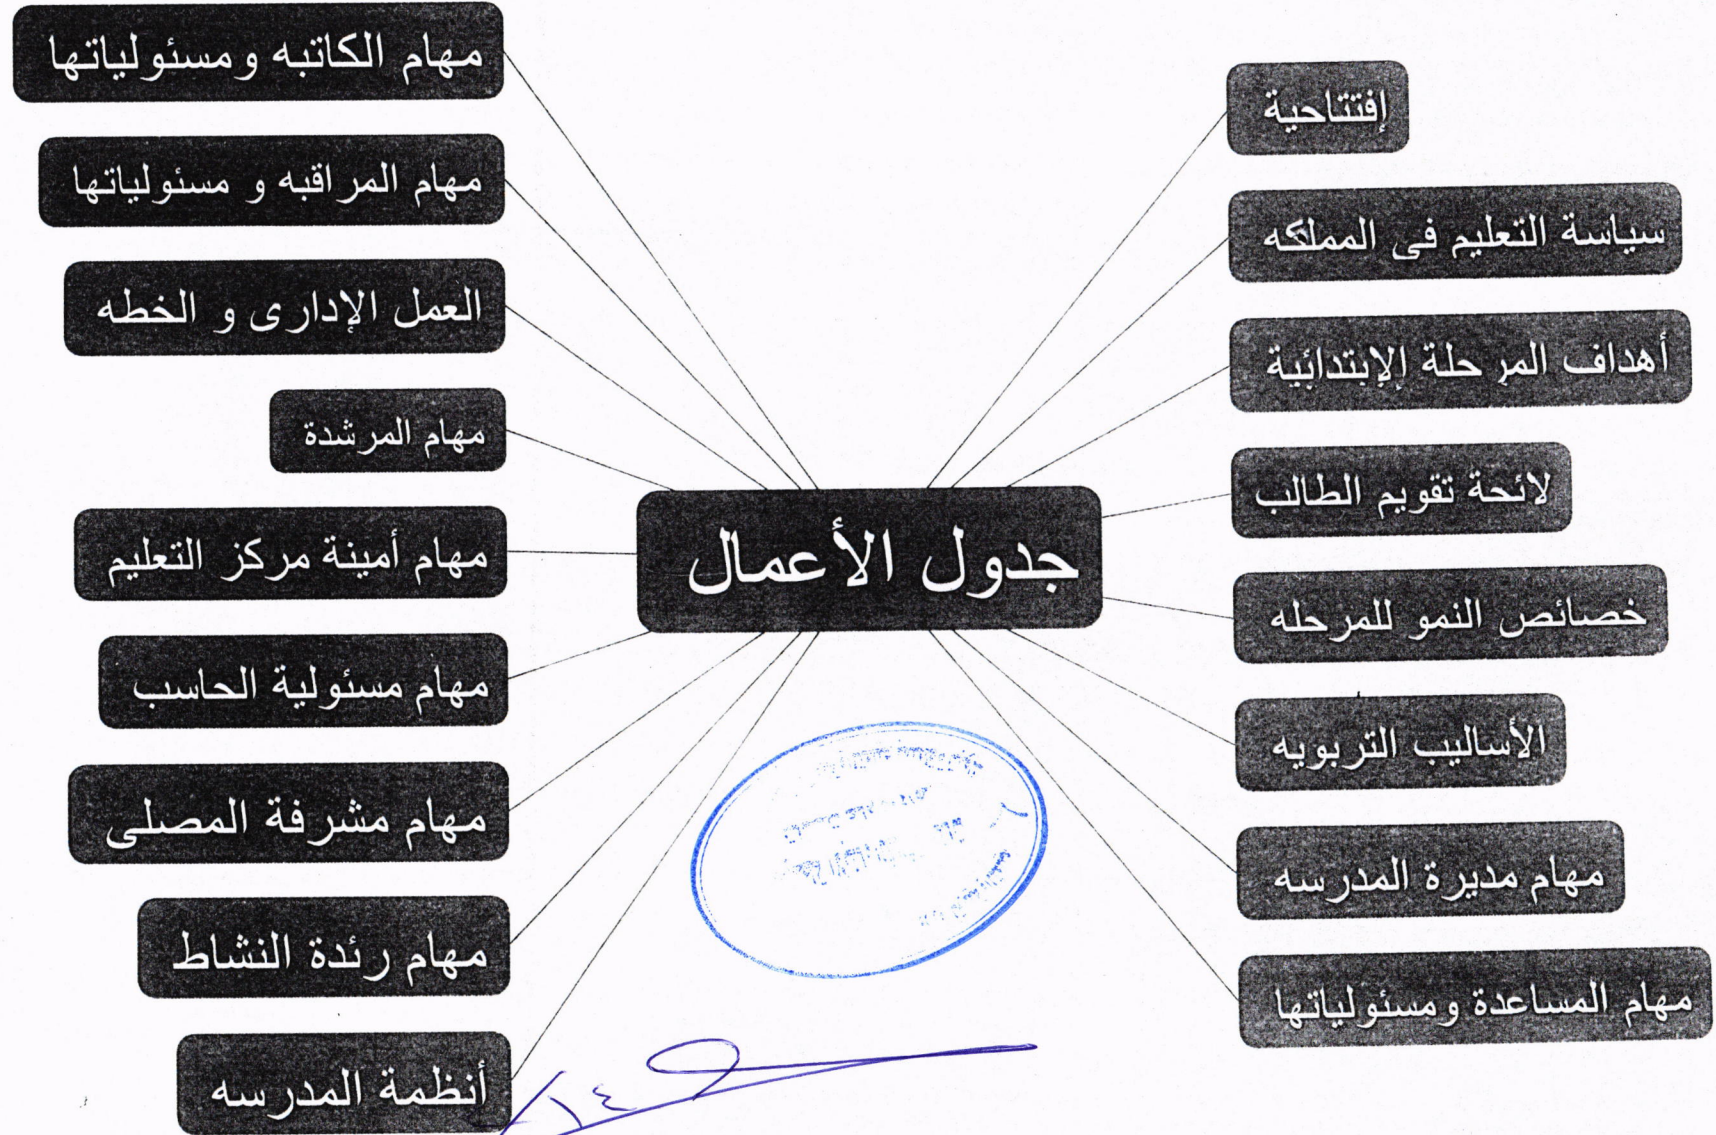 جدول الأعمال
إفتتاحية
سياسة التعليم فى المملكه
أهداف المرحلة الإبتدائية
لائحة تقويم الطالب
خصائص النمو للمرحله
الأساليب التربويه
مهام مديرة المدرسه
مهام المساعدة ومسئولياتها
مهام الكاتبه ومسئولياتها
مهام المراقبه و مسئولياتها
العمل الإدارى و الخطه
مهام المرشدة
مهام أمينة مركز التعليم
مهام مسئولية الحاسب
مهام مشرفة المصلى
مهام رئدة النشاط
أنظمة المدرسه